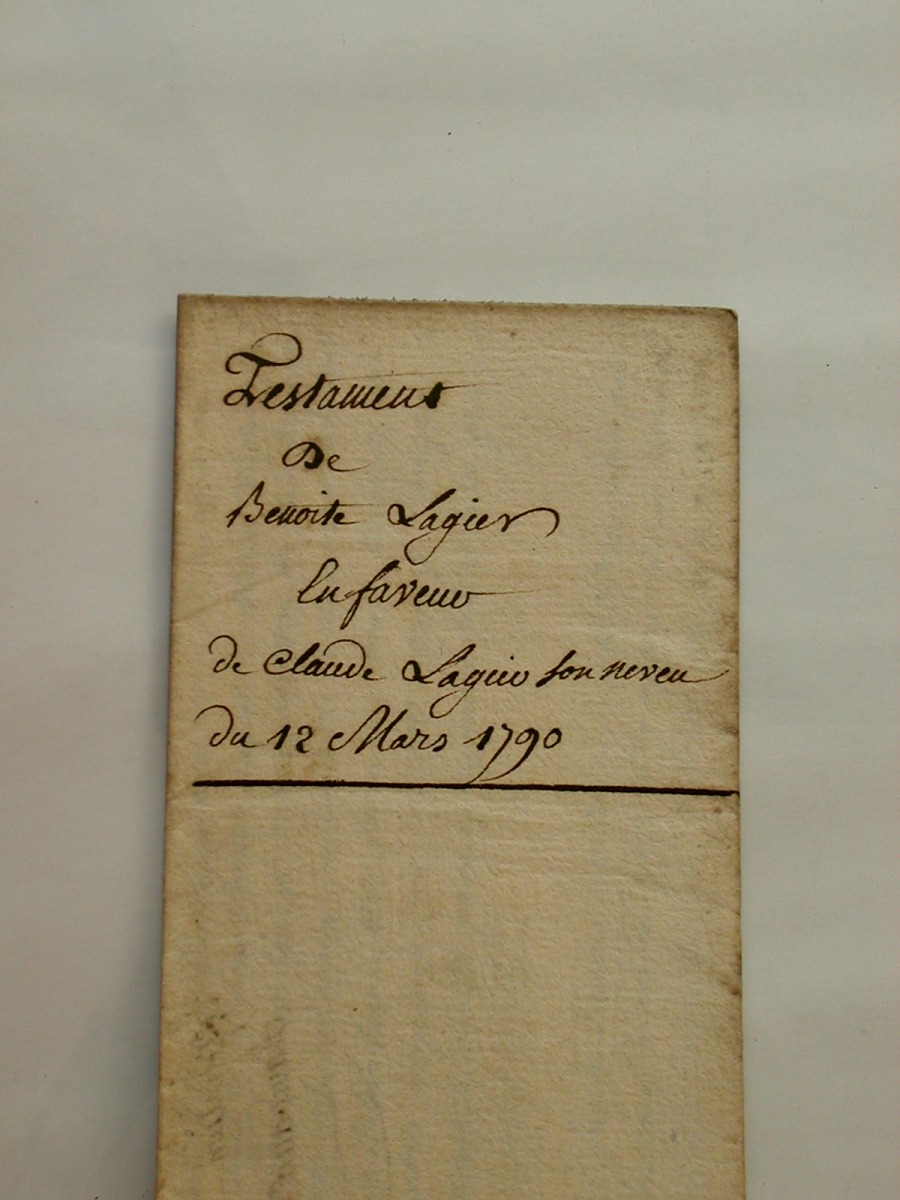 Testament
De
Benoite Lagier
En faveur
de Claude Lagier son neveu
du 12 Mars 1790